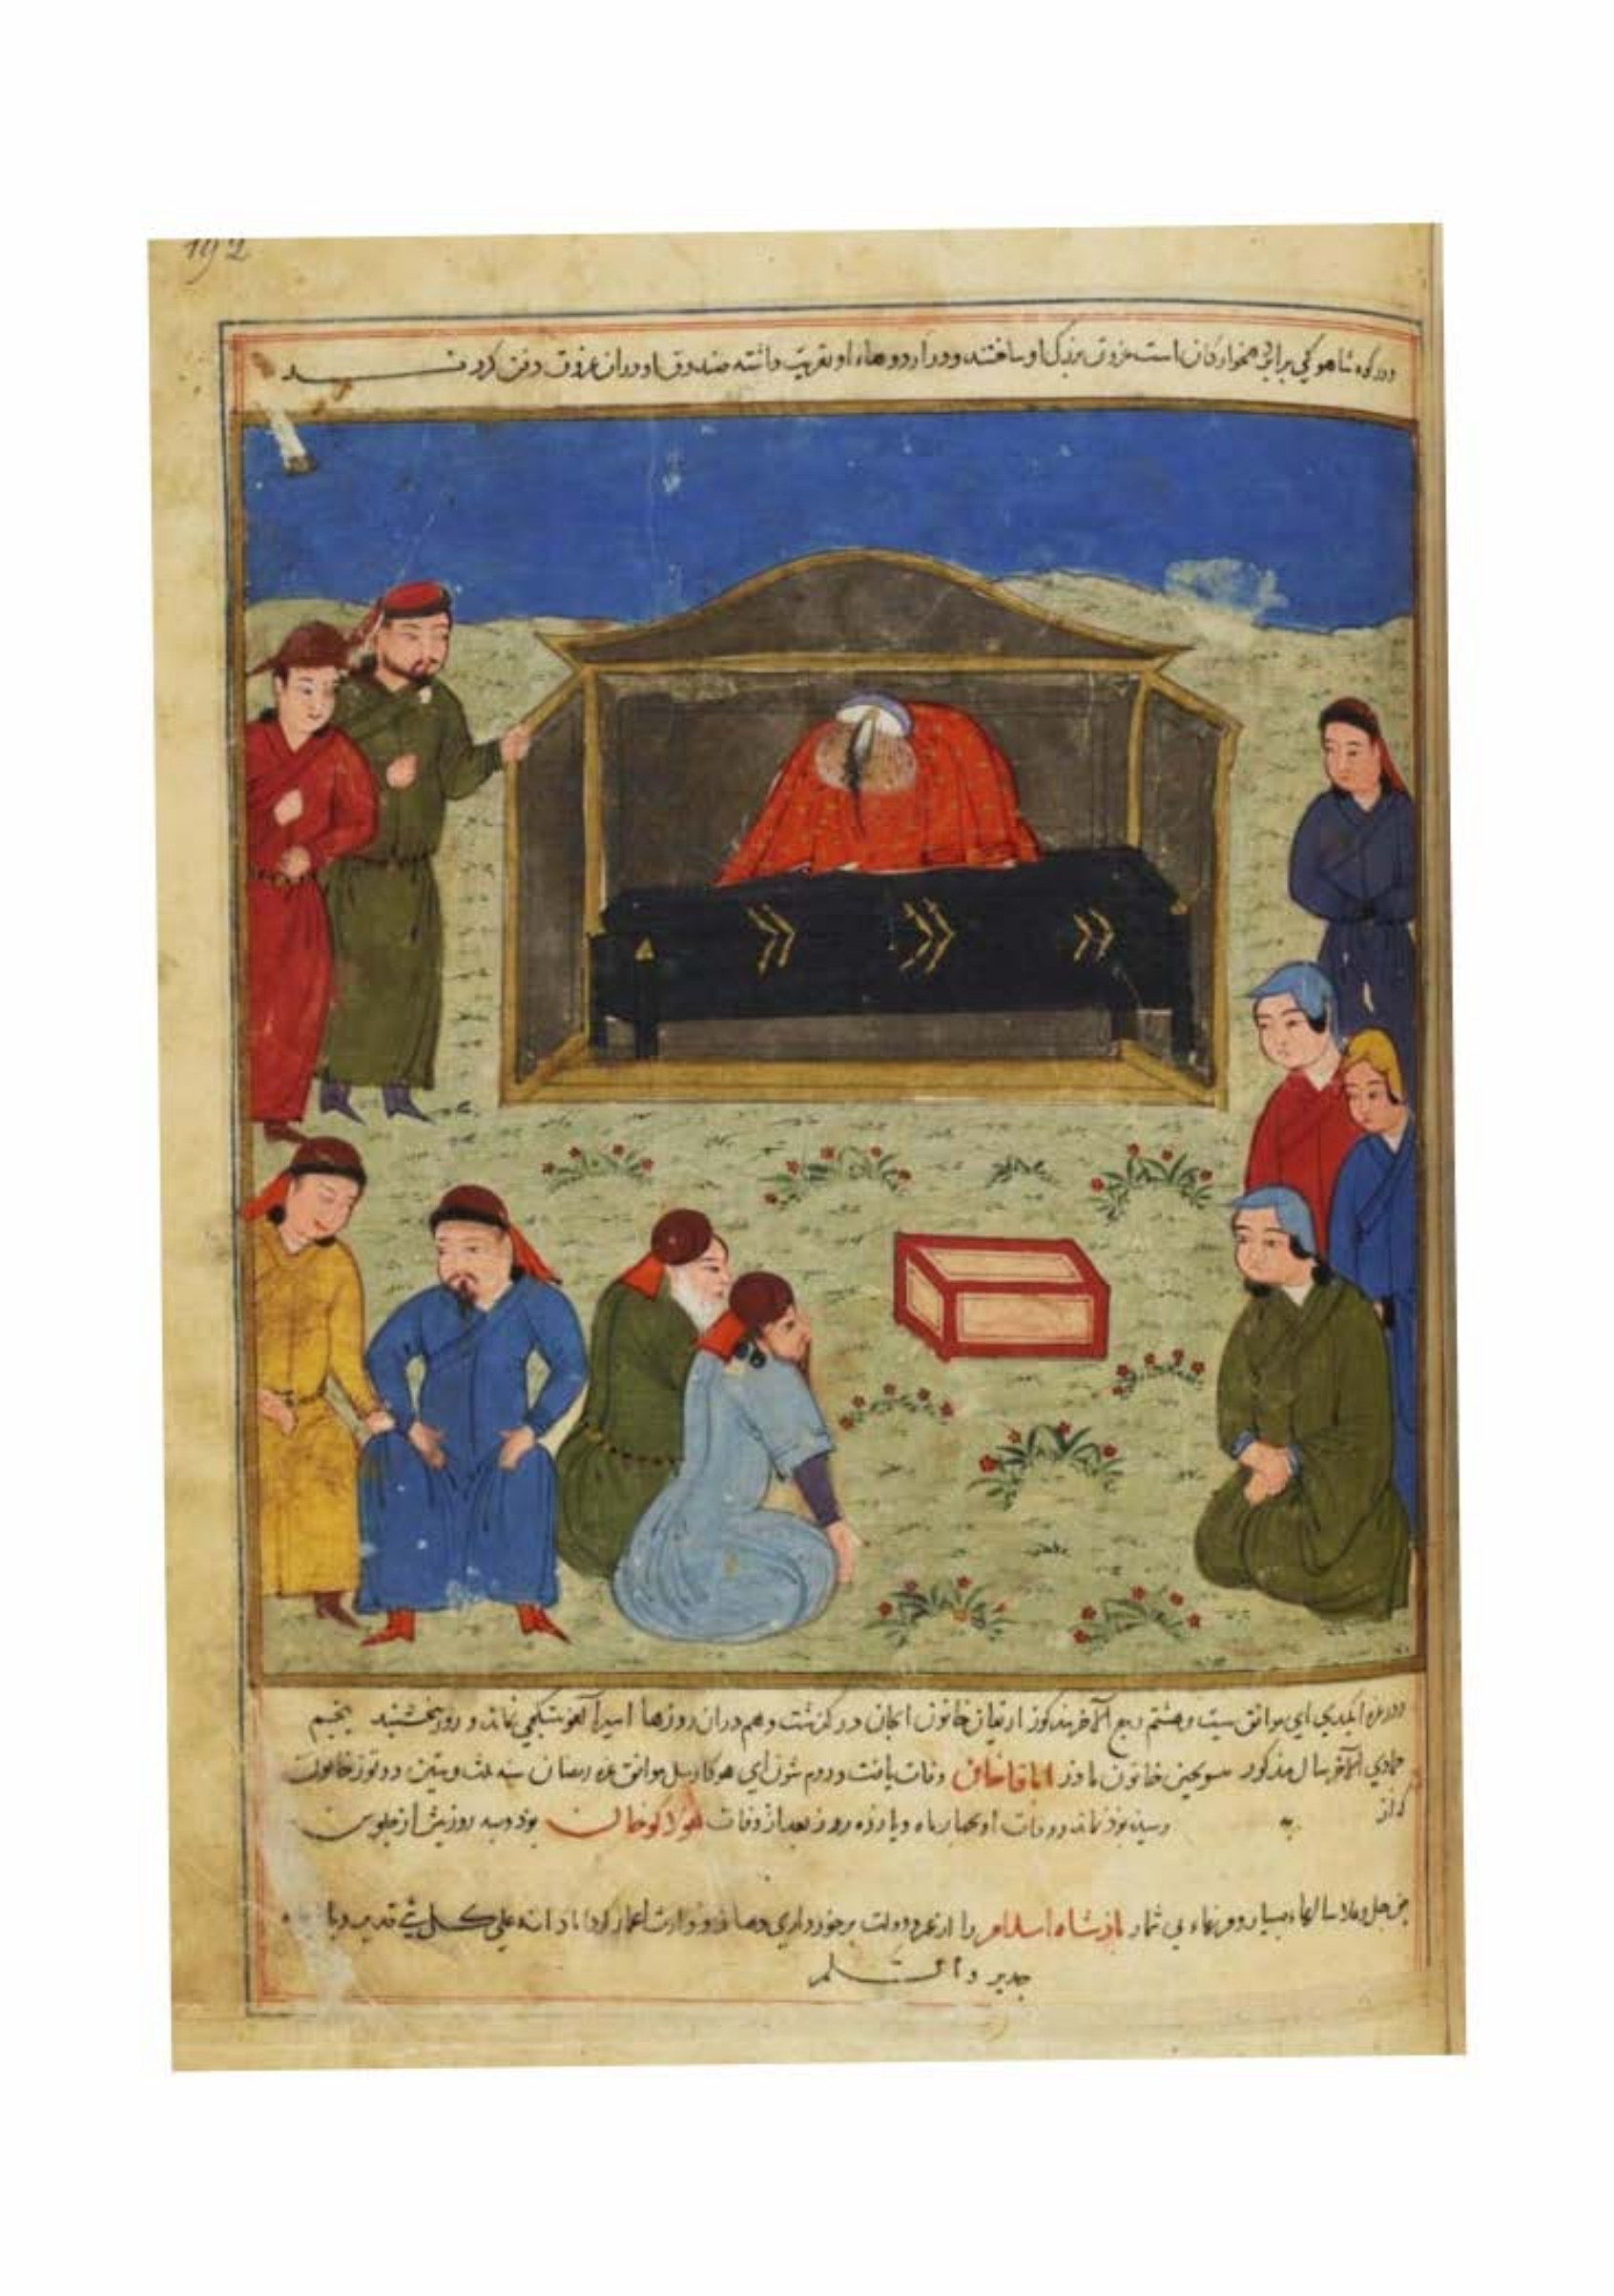 192
ودر کوه شاهو که برابر دهخوارقان است غروق بزرگ او ساختند ودر اردوهاء او تعزیت داشته صندوق او دران غروق دفن کردند
ودر غره ایکندی ای موافق بیست وهشتم ربیع الآخر مذکور ارتقان خاتون ایجان در گذشت وهم دران روزها نماند و روز پنجشنبه پنجم
جمادی الآخر سال مذکور خاتون مادر اباقا خان وفات یافت ودوم شون ای هوکار ییل موافق غره رمضان سنه ثلث وستین ودوقوز خاتون
که از
رسیده بود نماند ووفات او بچهار ماه ویازده روز بعد از وفات هولاکو خان بود وسه روز پیش از جلوس
حق جل وعلا سالهاء بسیار وقرنهاء بی شمار پادشاه اسلام را از عمر ودولت برخورداری دهاد ووارث اعمار گرداناد انه علی کل شیء قدیر وبالاجابه
جدیر والسلم